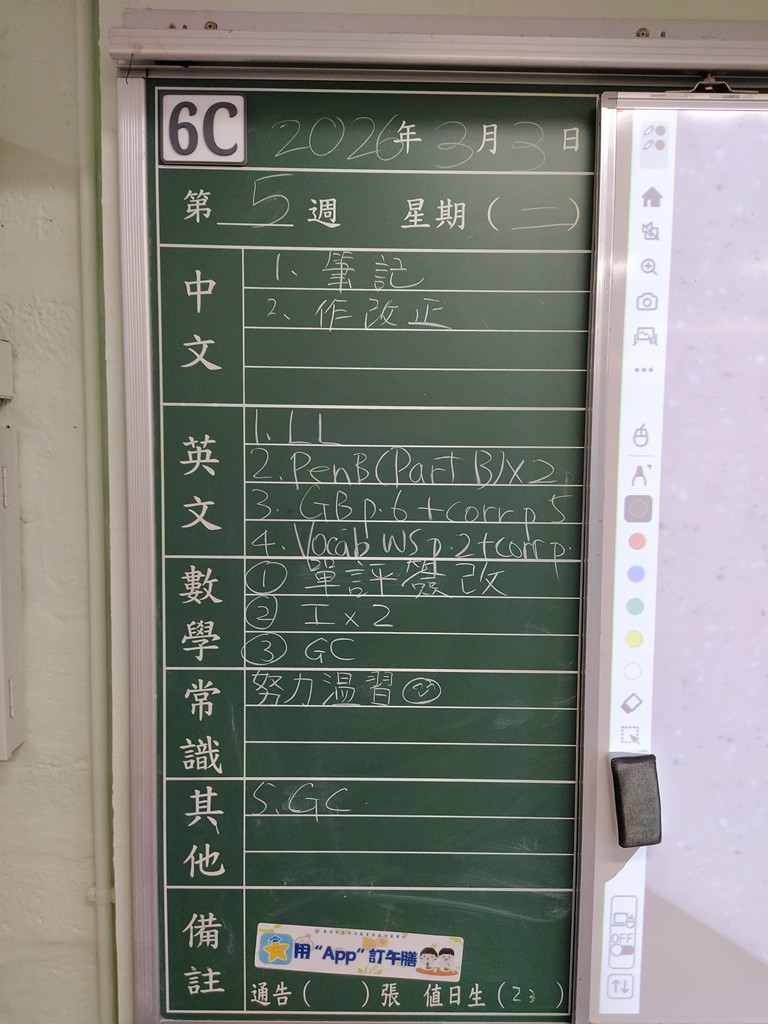 6C 2026年3月3日
第5週 星期(二)
中文
1、筆記
2、作改正
英文
1. LL
2. PenB(Part B)x2p
3. GB p.6+corr p5
4. Vocab WS p.2+corr p.
數學
① 單評簽改
② I x 2
③ GC
常識
努力温習
其他
5. GC
備註
用“App”訂午膳
通告( )張 值日生(23)
OFF